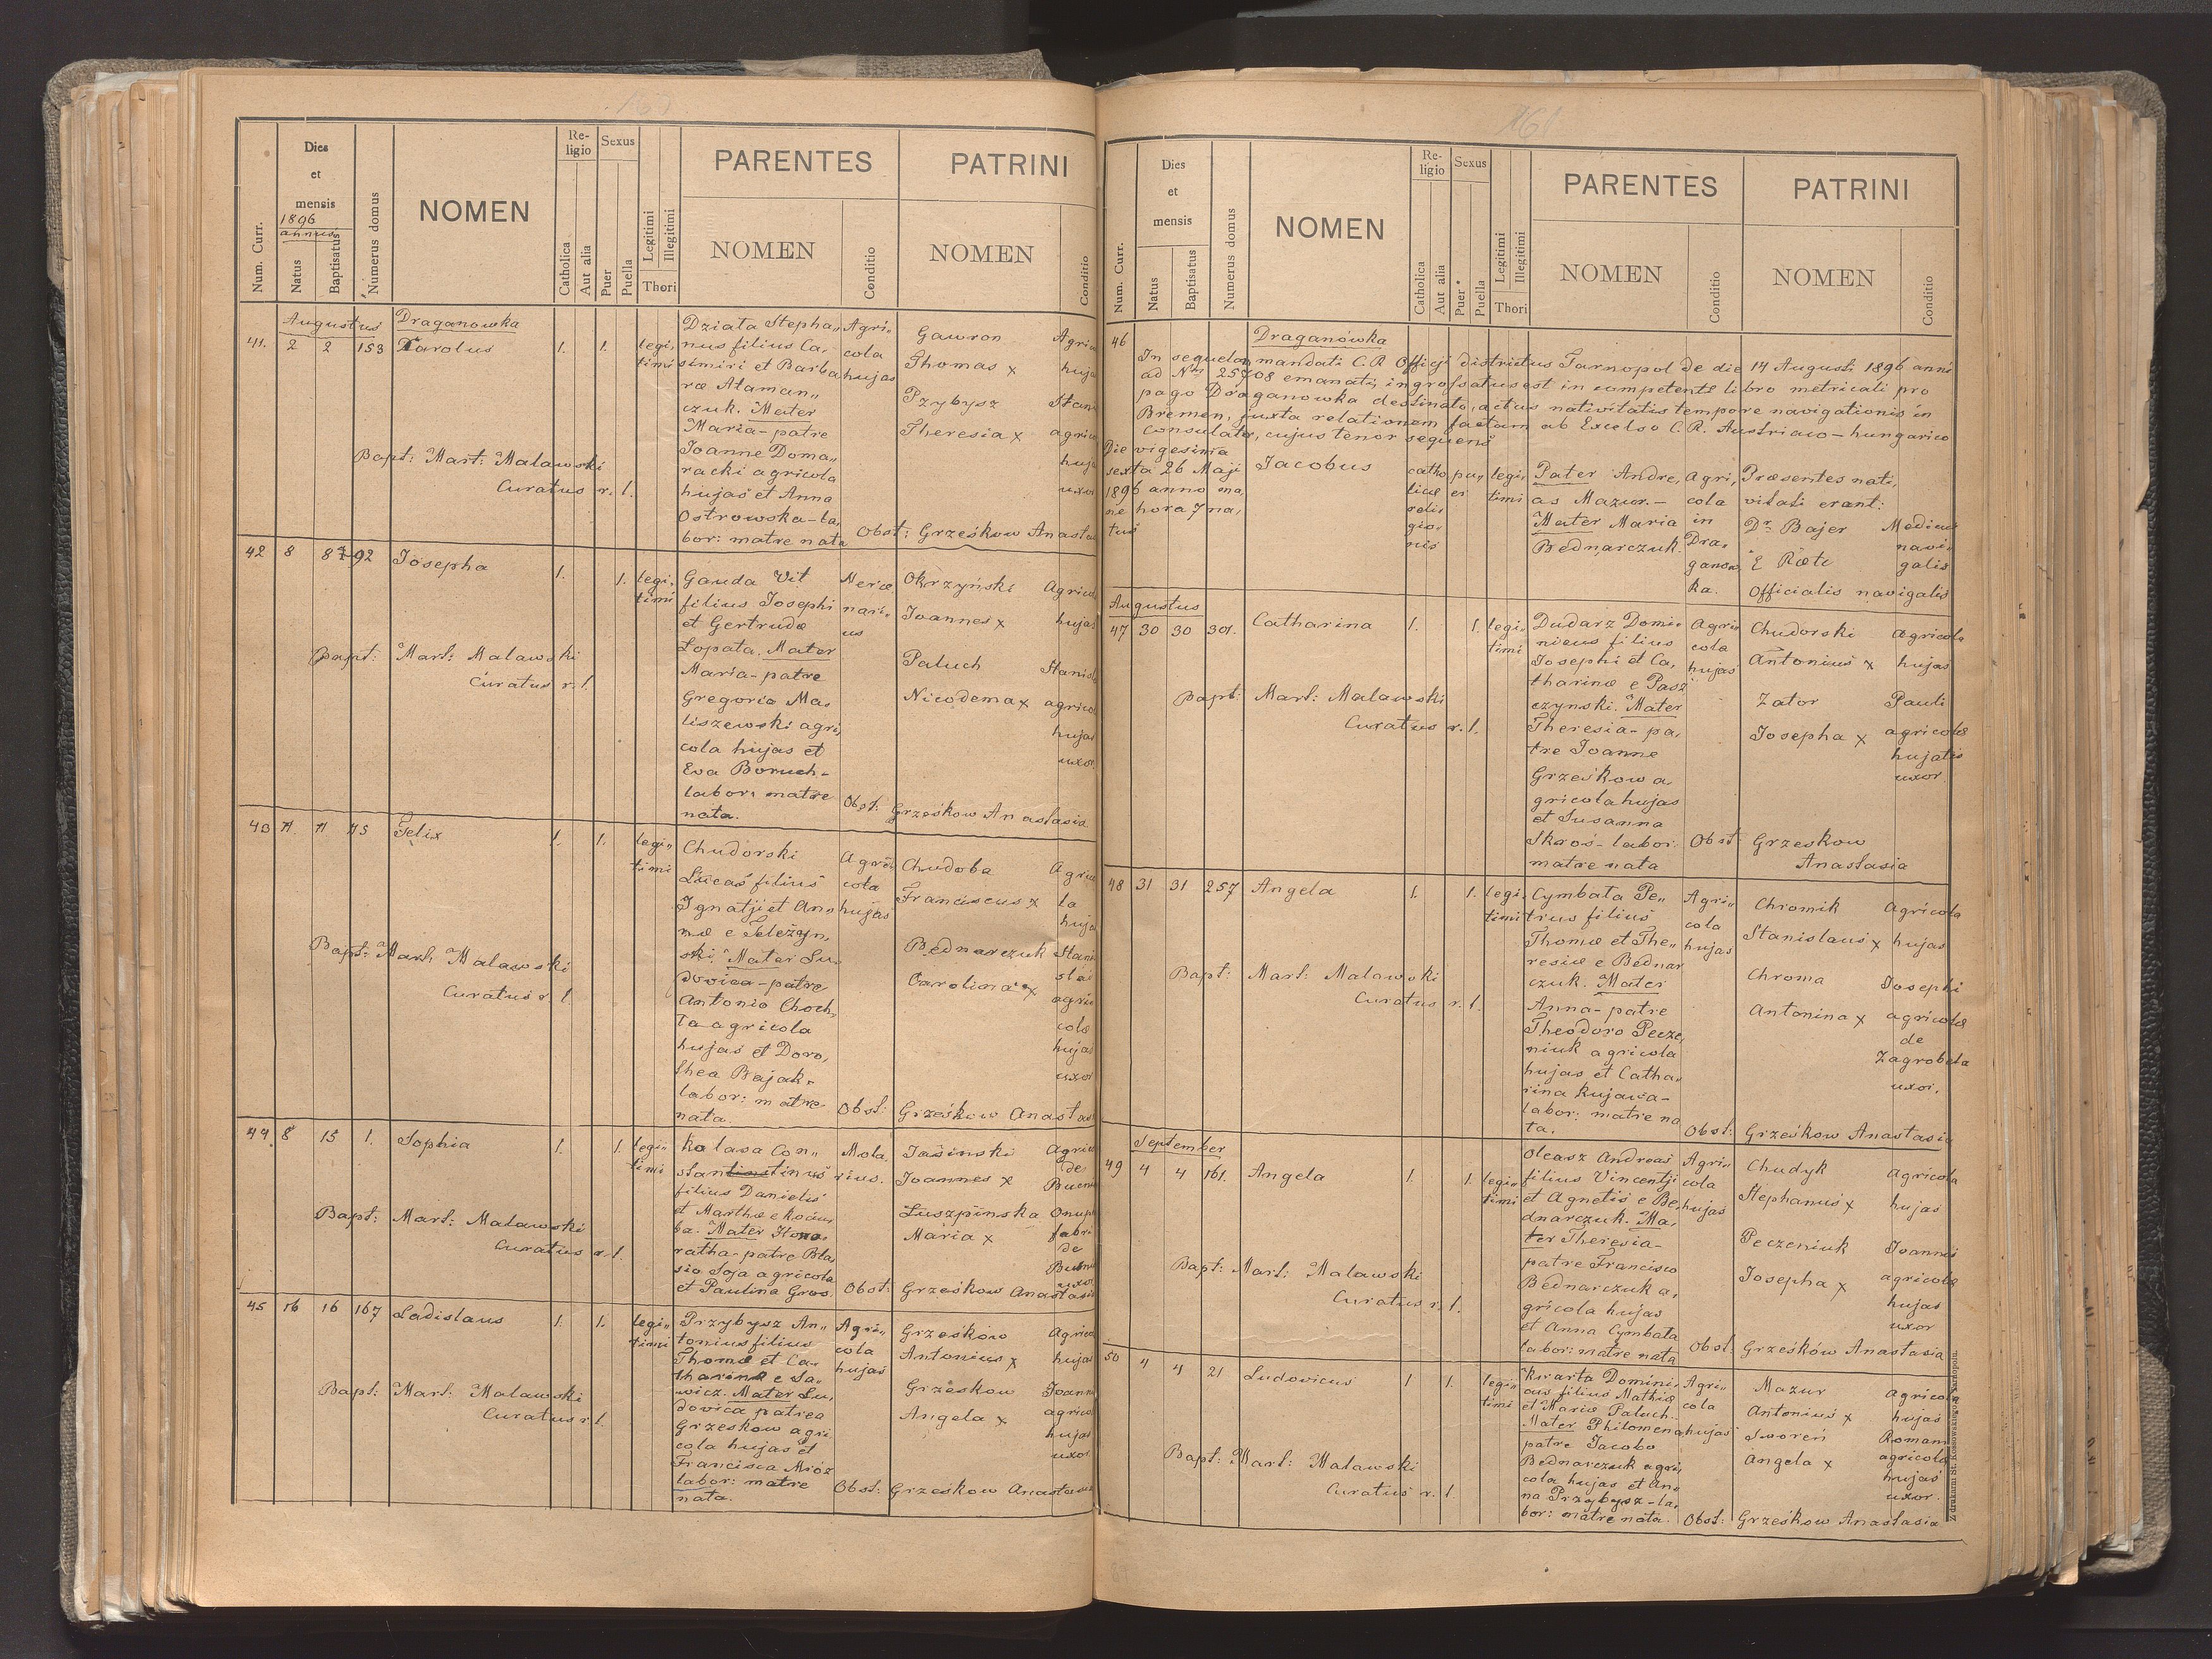 Num. Curr.
Dies
et
mensis
1896
annus
Natus
Baptisatus
Numerus domus
NOMEN
Re-
ligio
Catholica
Aut alia
Sexus
Puer
Puella
Legitimi
Illegitimi
Thori
PARENTES
NOMEN
Conditio
PATRINI
NOMEN
Conditio
Augustus
Draganowka
41. 2 2 153 Carolus 1. 1. legi„
timi
Bapt: Mart: Malawski
Curatus r. l.
Działa Stepha„
nus filius Ca„
simiri et Barba
ræ Ataman„
czuk. Mater
Maria-patre
Joanne Doma„
racki agricola
hujas et Anna
Ostrowska-la„
bor: matre nata
Agri„
cola
hujas
Gawron
Thomas x
Pzybysz
Theresia x
Agric
huja
Stani
agric
huja
uxor
Obst: Grzeskow Anasta
42 8 8 92 Josepha 1. 1. legi„
timi
Bapt: Mart: Malawski
Curatus r. l.
Gauda Vit
filius Josephi
et Gertrudæ
Łopata. Mater
Maria-patre
Gregorio Ma„
liszewski agri„
cola hujas et
Eva Boruch-
labor: matre
nata.
Merce
nari„
us
Okrzyński
Joannes x
Paluch
Nicodema x
Agrico
hujas
Stanisl
agrico
hujas
uxor
Obst: Grzeskow Anastasia
43 11 11 75 Felix 1. 1. legi„
timi
Bapt: Mart: Malawski
Curatus r. l.
Chudorski
Lucas filius
Ignatji et An„
næ e Teleżyn„
ski. Mater Lu„
dovica-patre
Antonio Choch„
ła agricola
hujas et Doro„
thea Bajak-
labor: matre
nata
Agri„
cola
hujas
Chudoba
Franciscus x
Bednarczuk
Carolina x
Agric
la
huja
Stani
slai
agric
colæ
hujas
uxor
Obst: Grzeskow Anastas
44. 8 15 1. Sophia 1. 1. legi„
timi
Bapt: Mart: Malawski
Curatus r. l.
Kolasa Con„
stantinus
filius Danielis
et Marthæ e
ba. Mater Hono„
ratha-patre Bla„
sio Soja agricola
et Paulina Gros.
Mola„
rius.
Jasinski
Joannes x
Łuszpinska
Maria x
Agric
de
Bucni
Onuph
fabri
de
uxor
Obst: Grzeskow Anastasia
45 16 16 167 Ladislaus 1. 1. legi„
timi
Bapt: Mart: Malawski
Curatus r. l.
Przybysz An„
tonius filius
Thomæ et Ca„
tharinæ e Sa„
wicz. Mater Lu„
dovica patre
Grzeskow agri„
cola hujas et
Francisca Mróz
labor: matre
nata.
Agri„
cola
hujas
Grzeskow
Antonius x
Grzeskow
Angela x
Agrico
hujas
Joanni
agrico
hujas
uxor
Obst: Grzeskow Anastasia
161
Num. Curr.
Dies
et
mensis
Natus
Baptisatus
Numerus domus
NOMEN
Re-
ligio
Catholica
Aut alia
Sexus
Puer
Puella
Legitimi
Illegitimi
Thori
PARENTES
NOMEN
Conditio
PATRINI
NOMEN
Conditio
46 Draganówka
In sequelam mandati C. R. Officji districtus Tarnopol de die 14 Augusti 1896 anni
ad Nrm 25708 emanati, ingrossatus est in competenti libro metricali pro
pago Draganowka destinato, actus nativitatis tempore navigationis in
Bremen, juxta relationem factam ab Excelso C. R. Austriaco-hungarico
consulato, cujus tenor sequens
Die vigesima
sexta 26 Maji
1896 anno ma„
ne hora 7 na„
tus
Jacobus
catho
licæ
reli„
gio„
nis
pu„
er
legi„
timi
Pater Andre„
as Mazur.-
Mater Maria
Bednarczuk.
Agri„
cola
in
Dra„
ganow„
ka.
Præsentes nati„
vitati erant:
Dr Bajer Medicus
navi„
galis
Officialis navigalis
Augustus
47 30 30 301. Catharina 1. 1. legi„
timi
Bapt: Mart: Malawski
Curatus r. l.
Dudarz Domi„
nicus filius
Josephi et Ca„
tharinæ e Pasz
czynski. Mater
Theresia-pa„
tre Joanne
Grzeskow a„
gricola hujas
et Susanna
Skros-labor:
matre nata
Agri„
cola
hujas
Chudorski
Antonius x
Zator
Josepha x
agricola
hujas
Pauli
agricolæ
hujatis
uxor
Obst: Grzeskow
Anastasia
48 31 31 257 Angela 1. 1. legi„
timi
Bapt: Mart: Malawski
Curatus r. l.
Cymbała Pe„
trus filius
Thomæ et The„
resiæ e Bednar
czuk. Mater
Anna-patre
Theodoro Pecze„
niuk agricola
hujas et Catha„
rina Kujawa-
labor: matre na
ta.
Agri„
cola
hujas
Chromik
Stanislaus x
Chroma
Antonina x
Agricola
hujas
Josephi
agricolæ
de
Zagrobela
uxor.
Obst: Grzeskow Anastasia
September
49 4 4 161. Angela 1. 1. legi„
timi
Bapt: Mart: Malawski
Curatus r. l.
Oleasz Andreas
filius Vincentji
et Agnetis e Be„
dnarczuk. Ma„
ter Theresia-
patre Francisco
Bednarczuk a„
gricola hujas
et Anna Cymbała
labor: matre nata
Agri„
cola
hujas
Chudyk
Stephanus x
Peczeniuk
Josepha x
agricola
hujas
Joannis
agricolæ
hujas
uxor
Obst: Grzesków Anastasia
50 4 4 21 Ludovicus 1 1. legi„
timi
Bapt: Mart: Malawski
Curatus r. l.
Kwarta Domini„
cus filius Mathiæ
et Mariæ Paluch.
Mater Philomena
patre Jacobo
Bednarczuk agri„
cola hujas et An„
na Przybysz-la„
bor: matre nata.
Agri„
cola
hujas
Mazur
Antonius x
Sworeń
Angela x
agricol
hujas
Romani
agricolæ
hujas
uxor.
Obst: Grzeskow Anastasia
Z drukarni St. Kossowskiego w Tarnopolu.